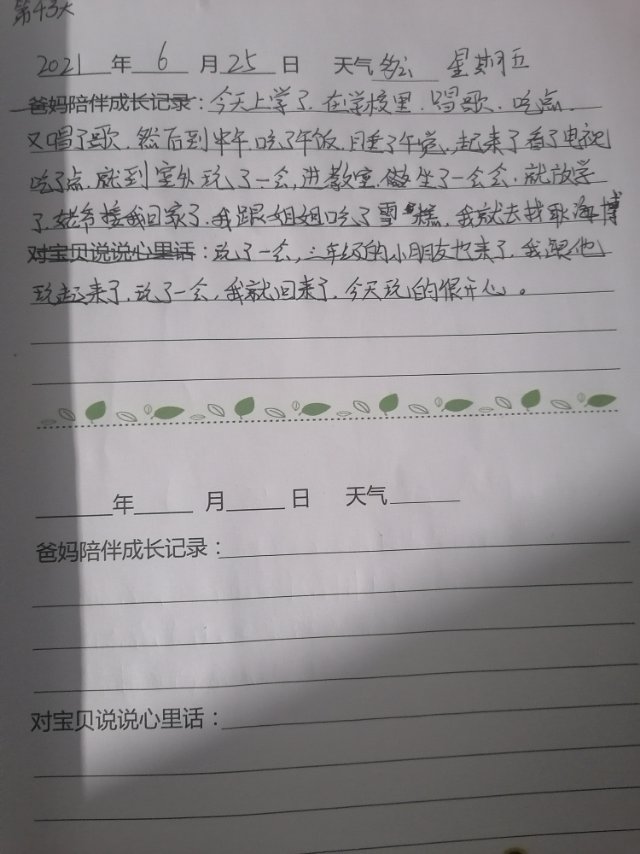 第43天
2021年6月25日 天气多云 星期五
爸妈陪伴成长记录:今天上学了.在学校里.唱歌.吃点.
又唱了歌.然后到中午吃了午饭.睡了午觉.起来了看了电视
吃了点.就到室外玩了一会,进教室.坐了一会会.就放学
了.爷爷接我回家了.我跟姐姐吃了雪糕.我就去找耿海博
对宝贝说说心里话:玩了一会,三年级的小朋友也来了.我跟他
玩起来了.玩了一会,我就回来了.今天玩的很开心。
年 月 日 天气
爸妈陪伴成长记录:
对宝贝说说心里话: